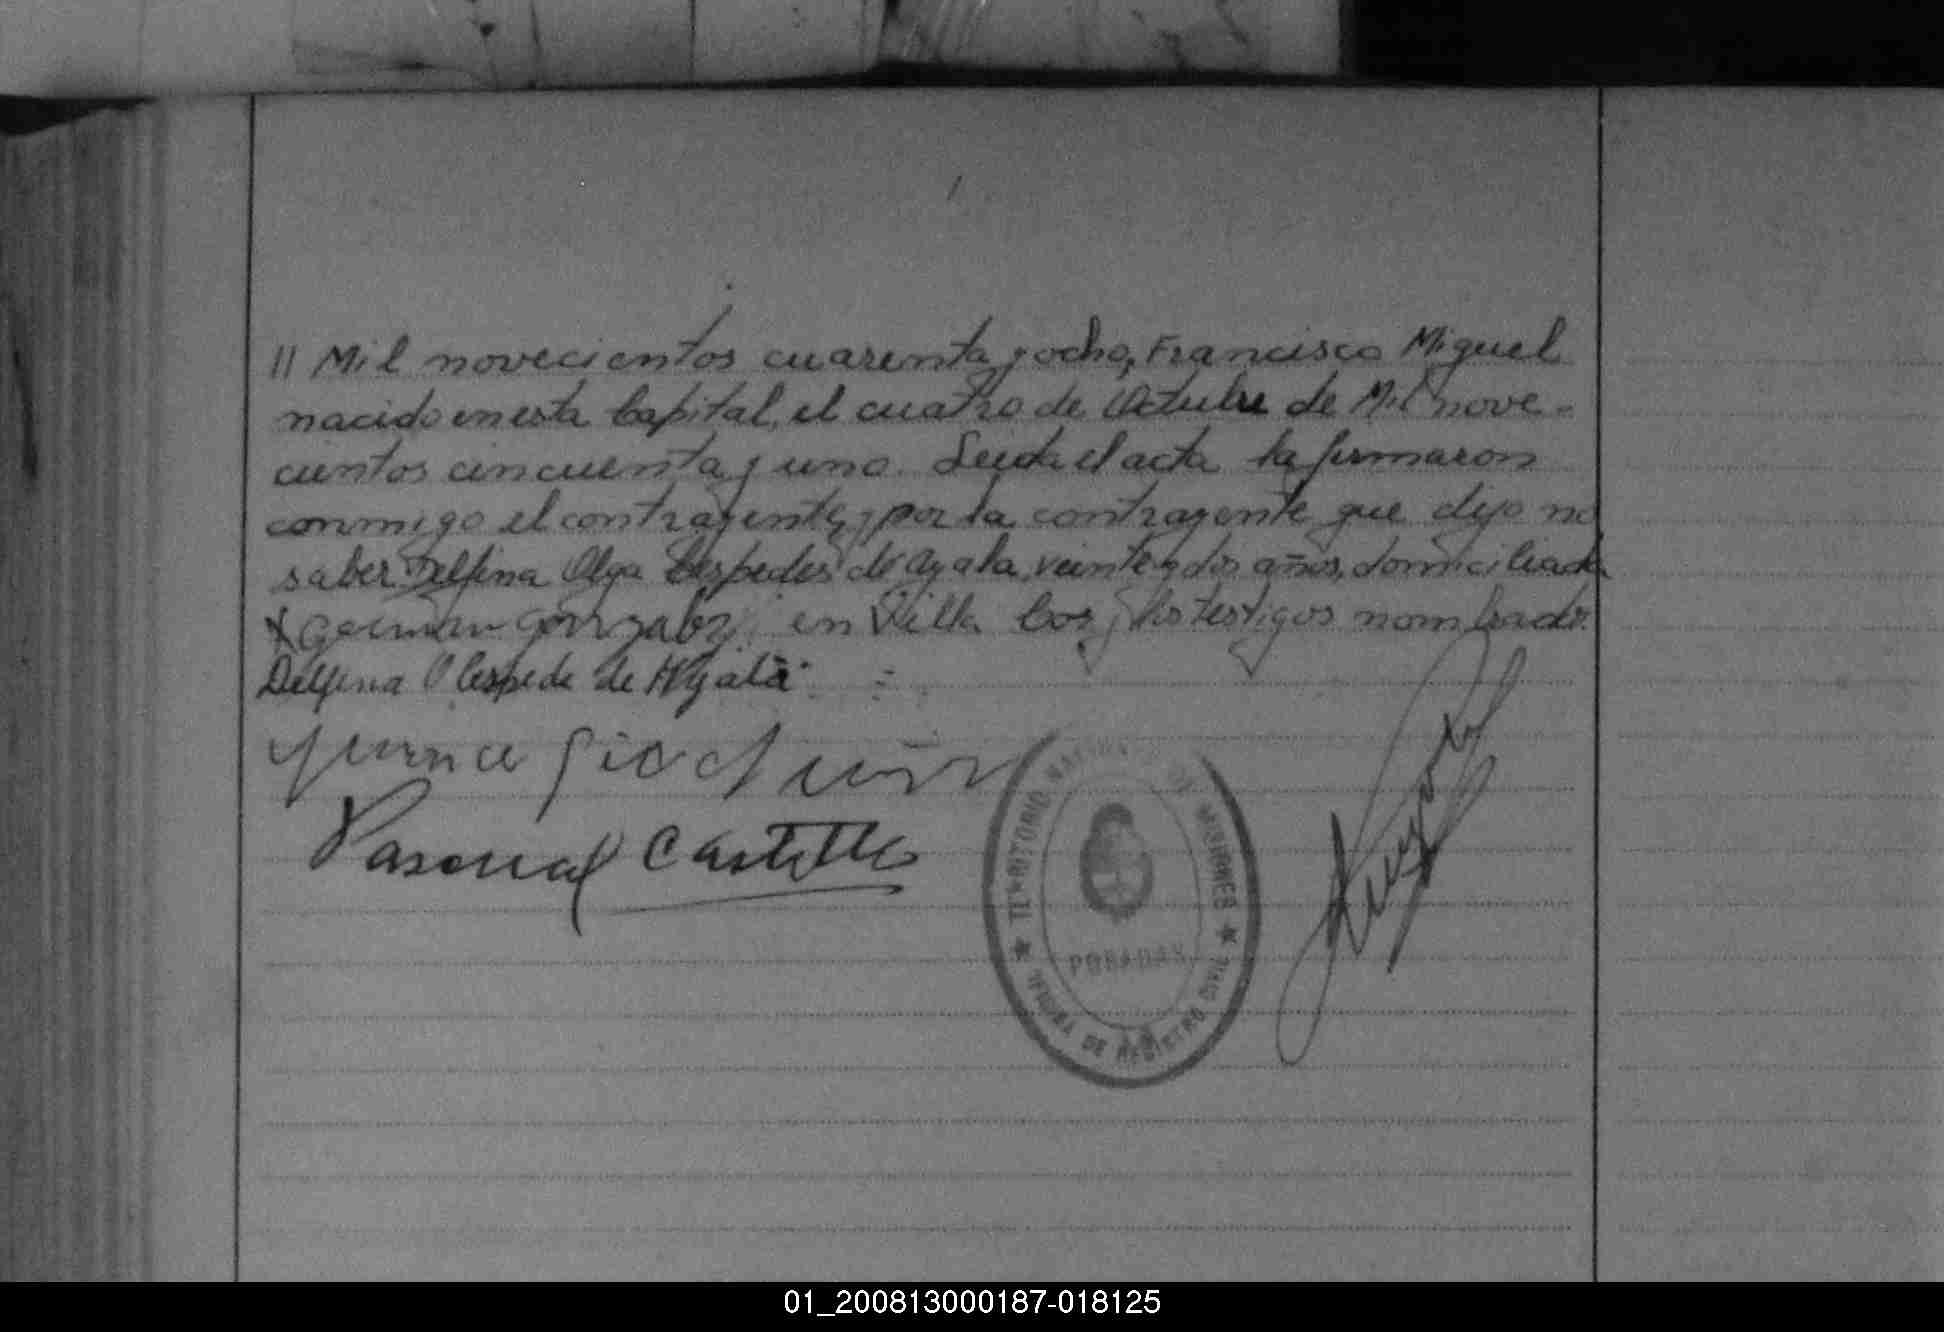 // Mil novecientos cuarenta y ocho, Francisco Miguel
nacido en esta Capital, el cuatro de Octubre de Mil nove-
cientos cincuenta y uno. Leida el acta la firmaron
conmigo el contrayente, y por la contrayente que dijo no
saber Delfina Olga Cespedes de Ayala, veinte y dos años, domiciliada
en Villa los testigos nombrados.
German Gonzalez
Delfina O Cespede de Ayala
Pascual Castillo
TERRITORIO NACIONAL DE MISIONES
POSADAS
OFICINA DE REGISTRO CIVIL
01_200813000187-018125